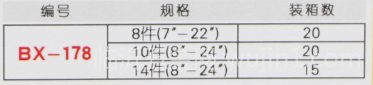 编号 规格 装箱数
8件(7"-22") 20
BX-178 10件(8"-24") 20
14件(8"-24") 15